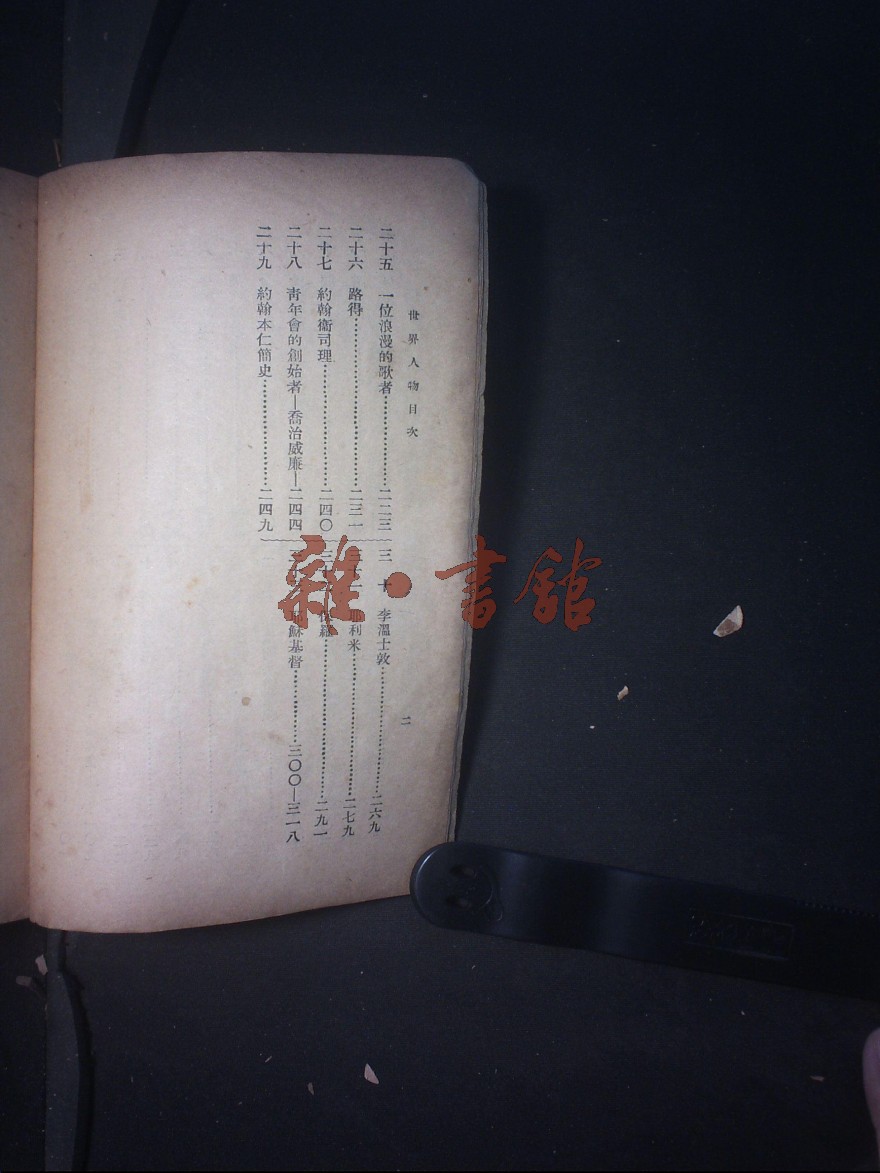 世界人物目次
二十五 一位浪漫的歌者……………二二三
二十六 路得……………二三一
二十七 約翰衞司理……………二四〇
二十八 靑年會的創始者—喬治威廉—二四四
二十九 約翰本仁簡史……………二四九
三十 李溫士敦……………二六九
利米……………二七九
羅……………二九一
穌基督……………三〇〇—三一八
二
雜·書館